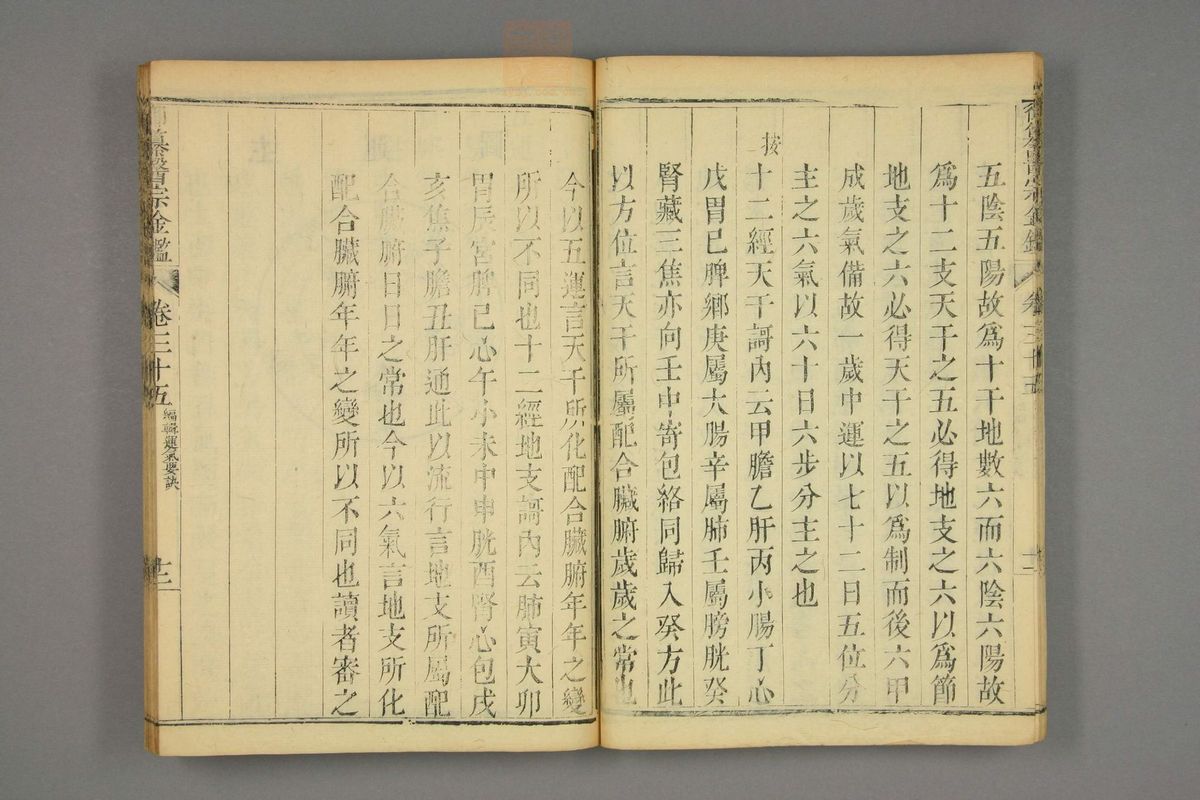 五陰五陽故爲十干地數六而六陰六陽故
爲十二支天干之五必得地支之六以爲節
地支之六必得天干之五以爲制而後六甲
成歲氣備故一歲中運以七十二日五位分
主之六氣以六十日六步分主之也
按
十二經天干謌內云甲膽乙肝丙小腸丁心
戊胃已脾鄉庚屬大腸辛屬肺壬屬膀胱癸
腎藏三焦亦向壬中寄包絡同歸入癸方此
以方位言天干所屬配合臟腑歲歲之常也
今以五運言天干所化配合臟腑年年之變
所以不同也十二經地支謌內云肺寅大卯
胃辰宮脾已心午小未中申胱酉腎心包戌
亥焦子膽丑肝通此以流行言地支所屬配
合臟腑日日之常也今以六氣言地支所化
配合臟腑年年之變所以不同也讀者審之
纂醫宗金鑑
卷三十五
編輯運氣要訣
十二